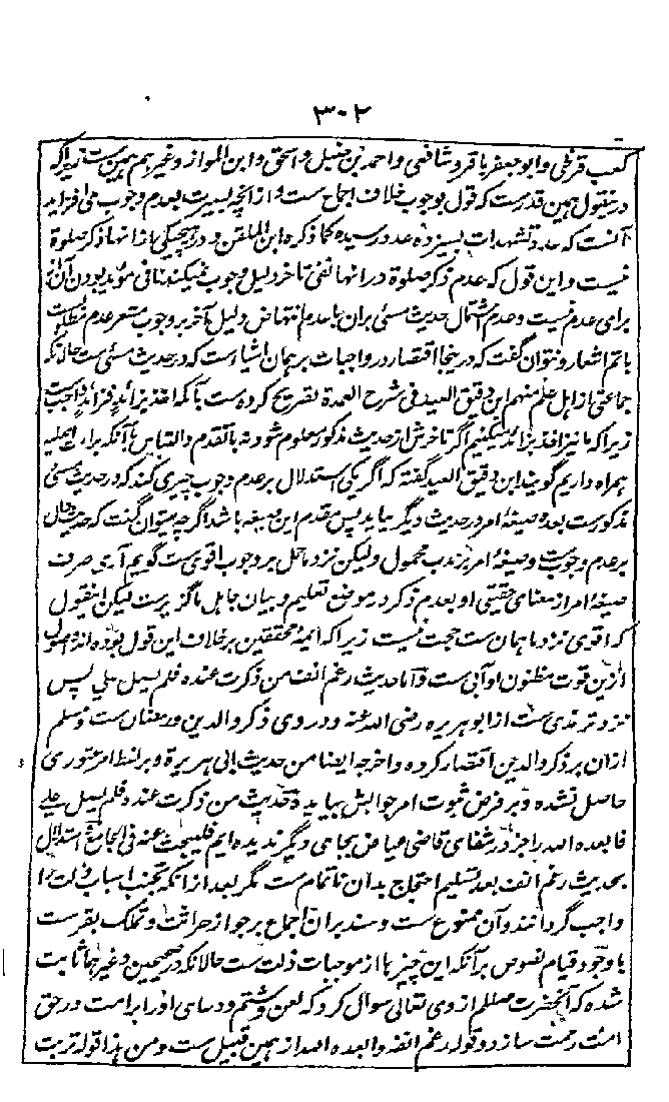 ۳۰۲
کعب قرظی و ابو جعفر باقر و شافعی و احمد بن حنبل و اسحق و ابن المواز و غیرهم همین ست زیراکه
درینقول همین قدرست که قول بوجوب خلاف اجماع ست و از انچه بسیرت بعدم وجوب می افزاید
آنست که عدد تشهدات بسیزده عدد رسیده کما ذکره ابن الملقن و در هیچیکی از انها ذکر صلوة
نیست و این قول که عدم ذکر صلوة در انها نفی تاخر دلیل وجوب نمیکند نافی مؤید بودن آن
برای عدم نیست و عدم اشتمال حدیث مسئ بران با عدم انتهاض دلیل آخر بر وجوب مشعر عدم مطلق ست
باتم اشعار و نتوان گفت که درینجا اقتصار در واجبات برهمان اشیا ست که در حدیث مسئ ست حالانکه
جماعتی از اهل علم منهم ابن دقیق العید فی شرح العمدة تصریح کرده ست بآنکه اخذ بزائد فزائد واجب ست
زیراکه ما نیز اخذ بزائد میکنیم اگر تاخرش از حدیث مذکور معلوم شود نه با تقدم و التباس با آنکه براءت اصلیه
همراه داریم گویند ابن دقیق العید گفته که اگر یکی استدلال بر عدم وجوب چیزی کند که در حدیث مسئ
مذکورست بعده صیغهٔ امر در حدیث دیگر بیاید پس مقدم این صیغه باشد اگرچه میتوان گفت که حدیث دال
بر عدم وجوب ست و صیغهٔ امر بر ندب محمول ولیکن نزد ما حمل بر وجوب اقوی ست گویم آری صرف
صیغهٔ امر از معنای حقیقی او بعدم ذکر در موضع تعلیم و بیان جاهل ناگزیر ست لیکن اینقول
که اقوی نزد ما همان ست حجت نیست زیراکه ائمهٔ محققین بر خلاف این قول بوده اند و اصول
ازین قوت مظنون او آبی ست و اما حدیث رغم انف من ذکرت عنده فلم یصل علی پس
نزد ترمذی ست از ابو هریره رضی الله عنه و در وی ذکر والدین و رمضان ست و مسلم
ازان بر ذکر والدین اقتصار کرده و اخرجه ایضا من حدیث ابی هریرة و برلفظ امر عثوری
حاصل نشده و بر فرض ثبوت امر جوابش بیاید و حدیث من ذکرت عنده فلم یصل علی
فابعده الله را جز در شفای قاضی عیاض بجای دیگر ندیده ایم فلیبحث عنه فی الجامع استدلال
بحدیث رغم انف بعد تسلیم احتجاج بدان ناتمام ست مگر بعد ازانکه تجنب اسباب ذلت را
واجب گردانند و آن ممنوع ست و سند بران اجماع بر جواز حراثت و تملک بقر ست
با وجود قیام نصوص بر آنکه این چیزها از موجبات ذلت ست حالانکه در صحیحین و غیرهما ثابت
شده که آنحضرت صللم از وی تعالی سوال کرد که لعن و شتم و دعای او را بر امت در حق
امت رحمت سازد و قوله رغم انفه و ابعده الله از همین قبیل ست و من هذا قوله تربت